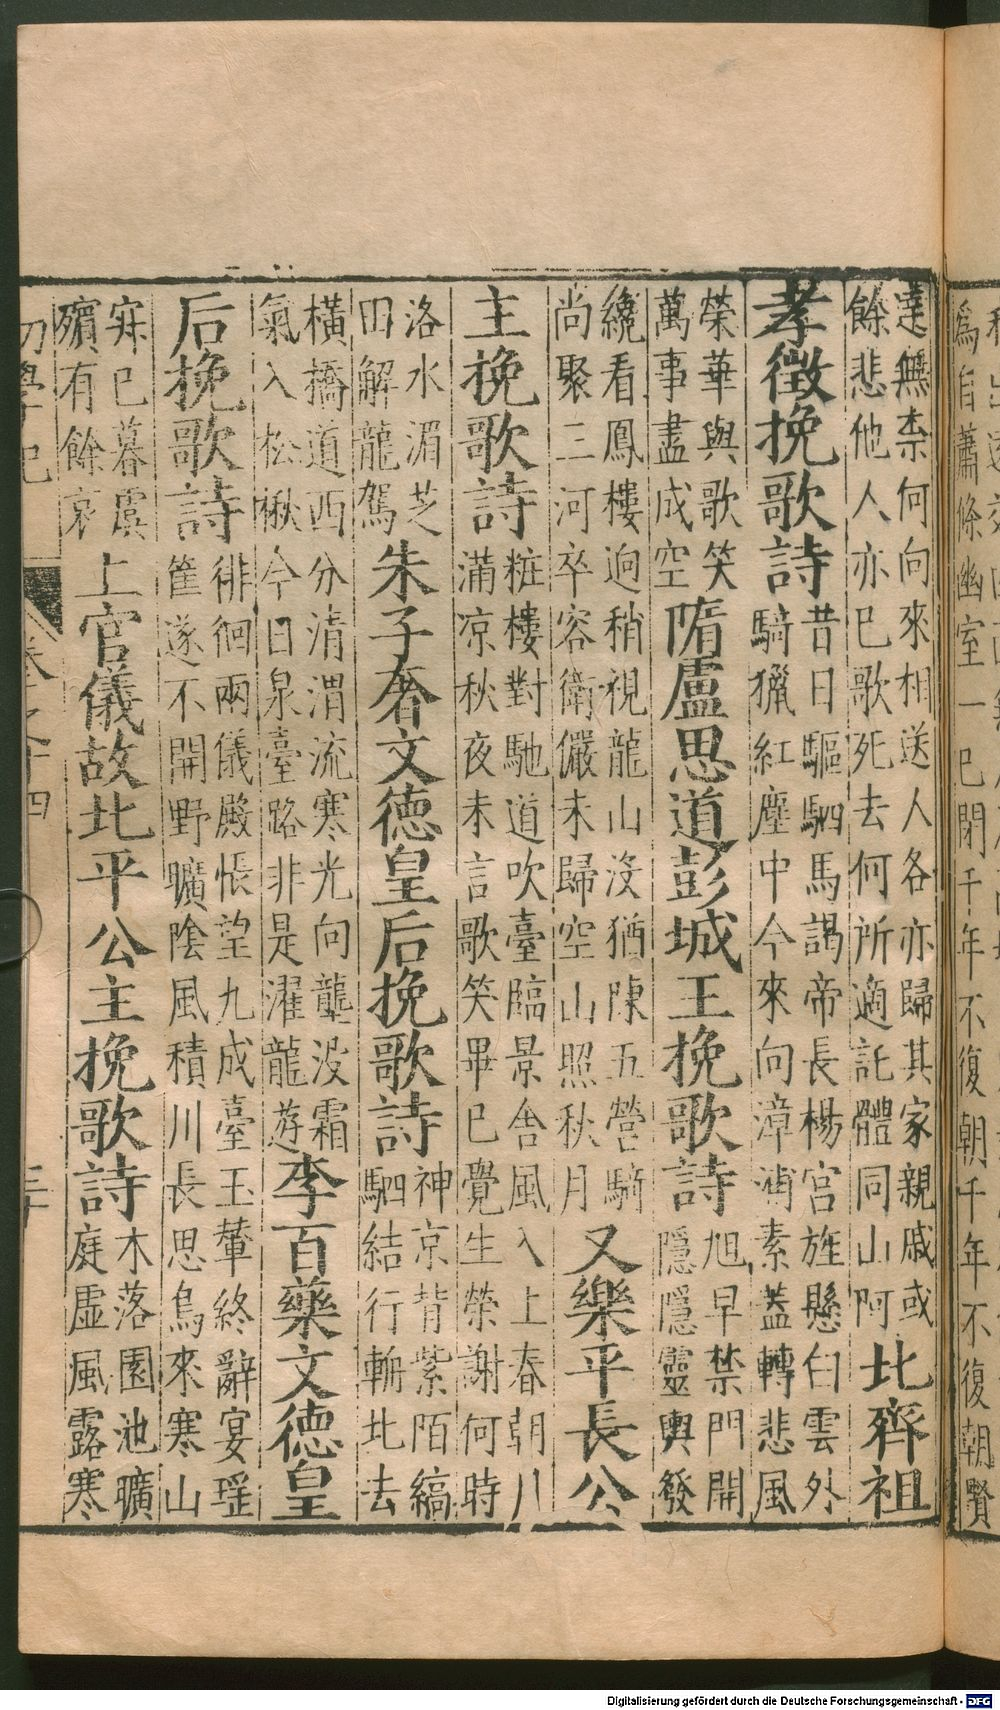 爲自蕭條幽室一已閉千年不復朝千年不復朝賢
達無柰何向來相送人各亦歸其家親戚或
餘悲他人亦已歌死去何所適託體同山阿
北齊祖
孝徵挽歌詩
昔日驅駟馬謁帝長楊宮旌懸白雲外
騎獵紅塵中今來向漳浦素蓋轉悲風
榮華與歌笑
萬事盡成空
隋盧思道彭城王挽歌詩
旭早禁門開
隱隱靈輿發
繞看鳳樓逈稍視龍山沒猶陳五營騎
尚聚三河卒容衛儼未歸空山照秋月
又樂平長公
主挽歌詩
粧樓對馳道吹臺臨景舍風入上春朝川
滿凉秋夜未言歌笑畢已覺生榮謝何時
洛水湄芝
田解龍駕
朱子奢文德皇后挽歌詩
神京背紫陌縞
駟結行輈北去
橫橋道西分清渭流寒光向壟没霜
氣入松楸今日泉臺路非是濯龍游
李百藥文德皇
后挽歌詩
徘徊兩儀殿悵望九成臺玉輦終辭宴瑶
筐遂不開野曠陰風積川長思鳥來寒山
寐已暮虞
殯有餘哀
上官儀故北平公主挽歌詩
木落園池曠
庭虛風露寒
初學記 卷之十四 三十
Digitalisierung gefördert durch die Deutsche Forschungsgemeinschaft - DFG